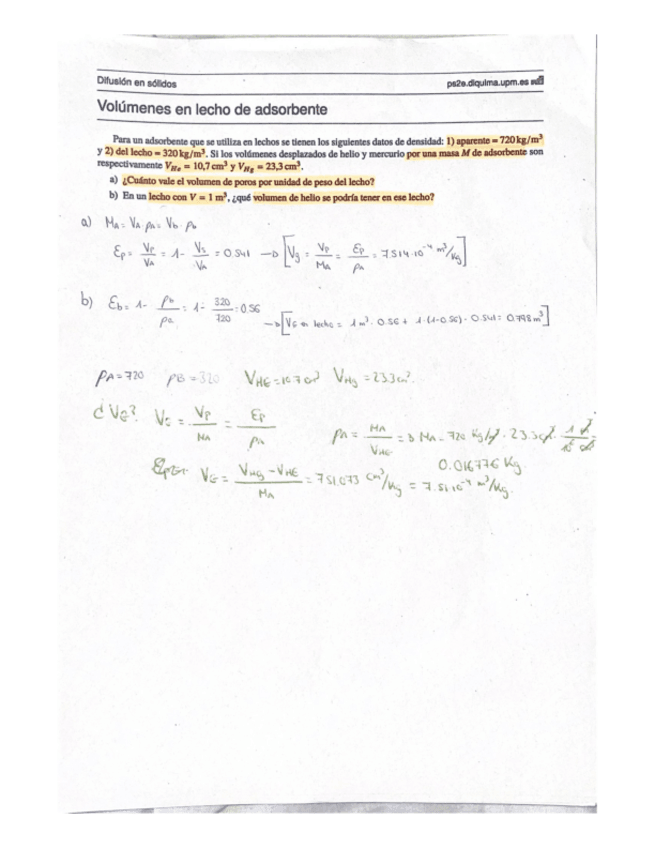 Difusión en sólidos
ps2e.diquima.upm.es
Volúmenes en lecho de adsorbente
Para un adsorbente que se utiliza en lechos se tienen los siguientes datos de densidad: 1) aparente = 720 kg/m³
y 2) del lecho = 320 kg/m³. Si los volúmenes desplazados de helio y mercurio por una masa M de adsorbente son
respectivamente V_He = 10,7 cm³ y V_Hg = 23,3 cm³.
a) ¿Cuánto vale el volumen de poros por unidad de peso del lecho?
b) En un lecho con V = 1 m³, ¿qué volumen de helio se podría tener en ese lecho?
a) M_A = V_A · ρ_A = V_b · ρ_b
ε_p = V_p/V_A = 1 - V_s/V_A = 0.541 → [V_g = V_p/M_A = ε_p/ρ_A = 7.514·10⁻⁴ m³/kg]
b) ε_b = 1 - ρ_b/ρ_a = 1 - 320/720 = 0.56
→ [V_G en lecho = 1 m³ · 0.56 + 1·(1-0.56) · 0.541 = 0.798 m³]
ρ_A = 720 ρ_B = 320 V_HE = 10.7 cm³ V_Hg = 23.3 cm³.
¿V_G? V_G = V_P/M_A = ε_P/ρ_A ρ_A = M_A/V_HG → M_A = 720 kg/m³ · 23.3 cm³ · 1 m³/10⁶ cm³
0.016776 kg.
V_G = (V_Hg - V_HE)/M_A = 751.073 cm³/kg = 7.51·10⁻⁴ m³/kg.